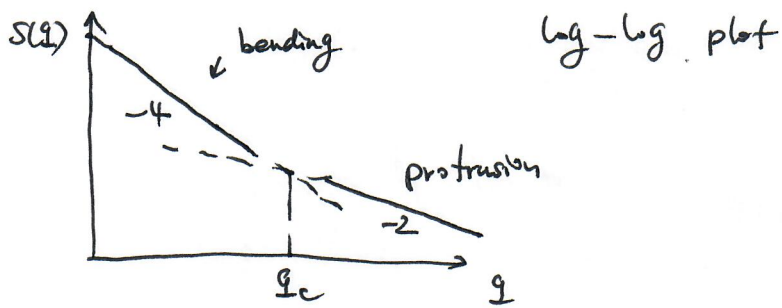 S(q) bending log-log plot
-4
protrusion
-2
q_c q